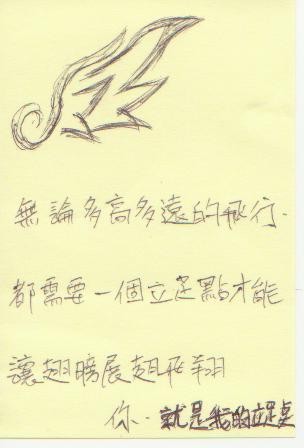 無論多高多遠的飛行.
都需要一個立足點才能
讓翅膀展翅飛翔
你.就是我的立足点